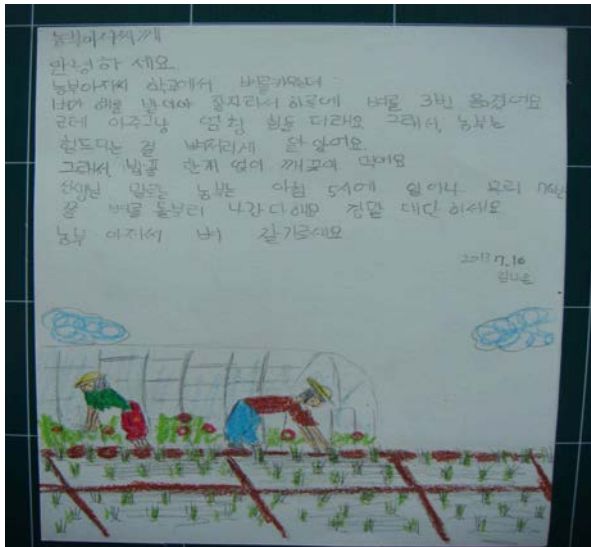 농부아저씨께
안녕하세요
농부아저씨 학교에서 벼를키우는데
벼가 해를 받아야 잘자라서 하루에 벼를 3번 옮겼어요
근데 아주그냥 엄청 힘들더라고요 그래서, 농부는
힘드다는 걸 뼈저리게 알았어요.
그래서 밥풀 한개 없이 깨끗이 먹어요
선생님 말로는 농부는 아침 5시에 일어나
꼭 벼를 돌보러 나간다해요 정말 대단하세요
농부 아저씨 벼 잘기르세요
2013 7.16